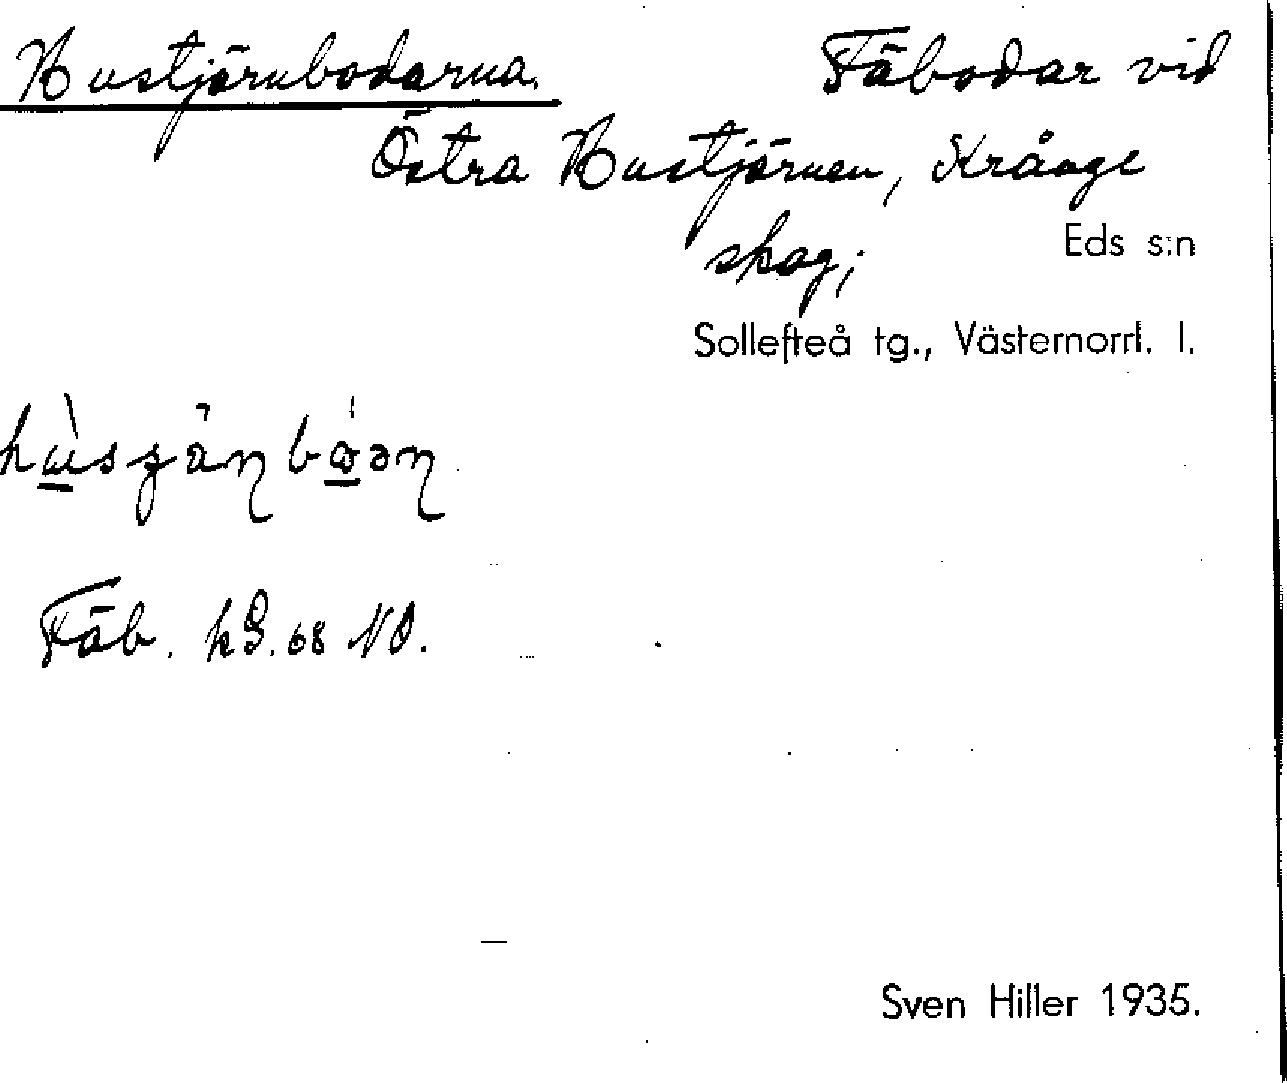 Hustjärnbodarna. Fäbodar vid
Östra Hustjärnen, Krånge
skog;
Eds s:n
Sollefteå tg., Västernorrl. l.
Fäb. hS. 68 NO.
Sven Hiller 1935.